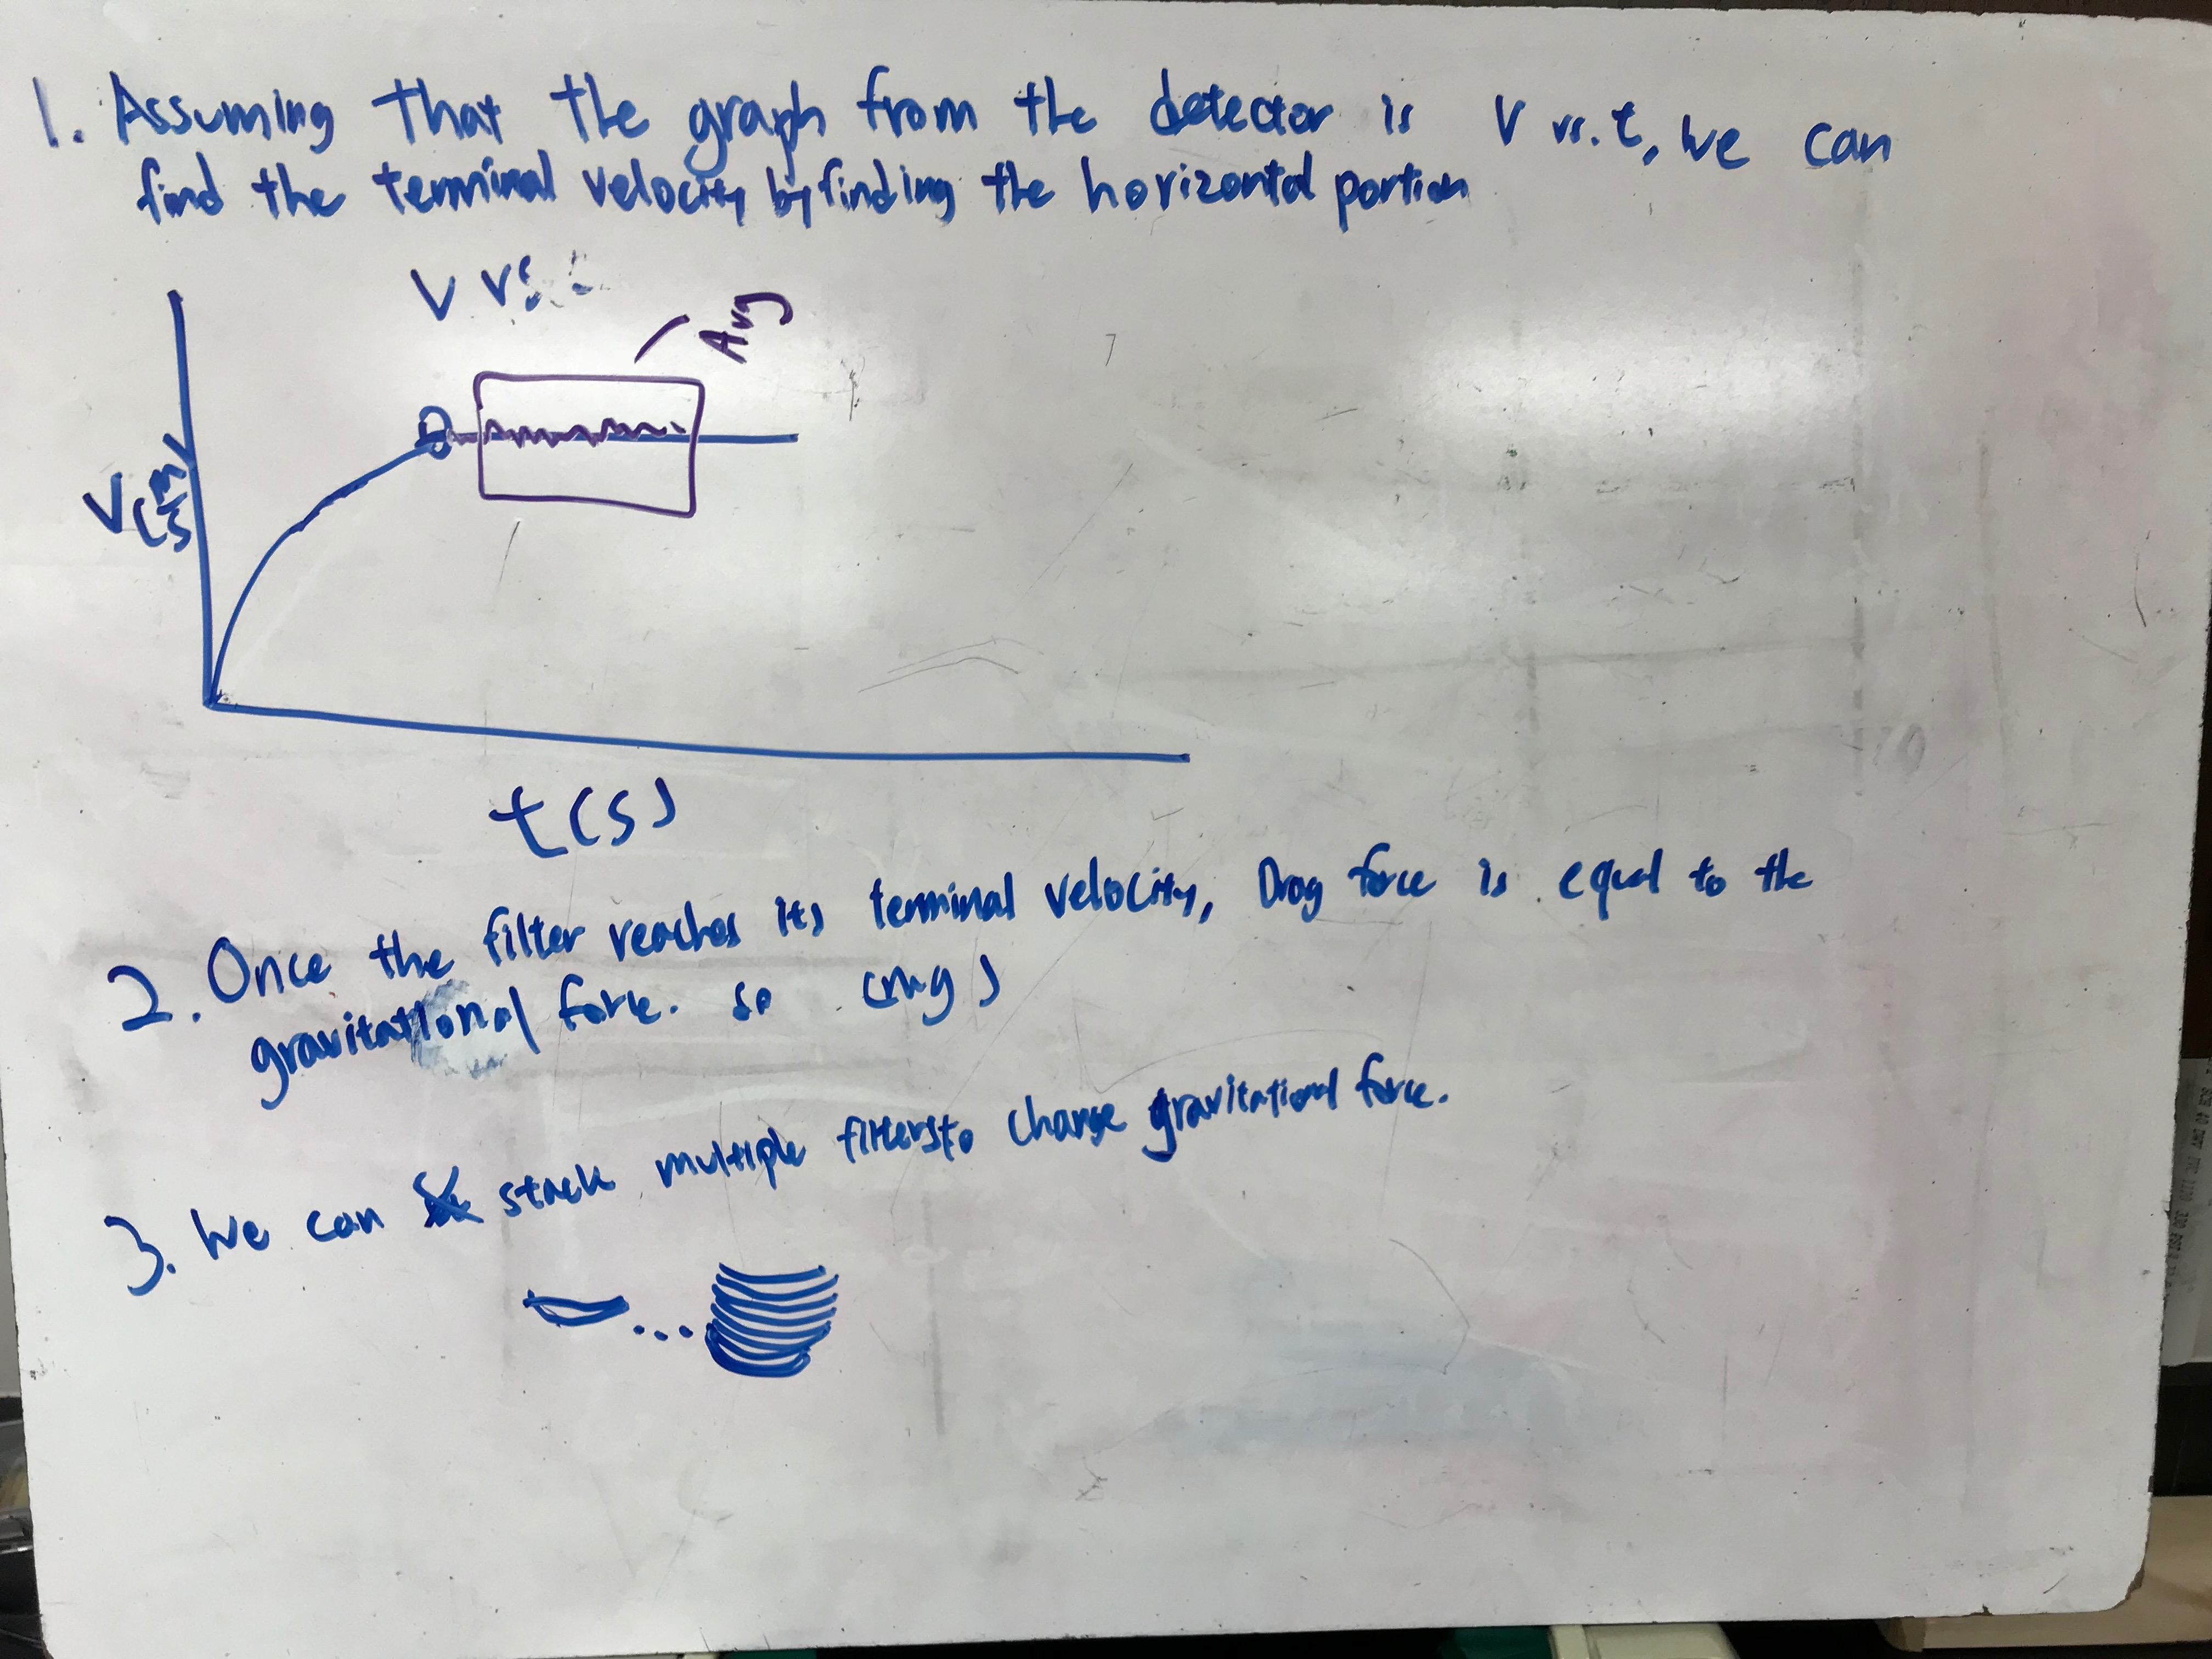 1. Assuming that the graph from the detector is V vs. t, we can
find the terminal velocity by finding the horizontal portion
V vs
Avg
V(m/s)
t(s)
2. Once the filter reaches its terminal velocity, Drag force is equal to the
gravitational force. so (mg)
3. We can stack multiple filters to change gravitational force.
...